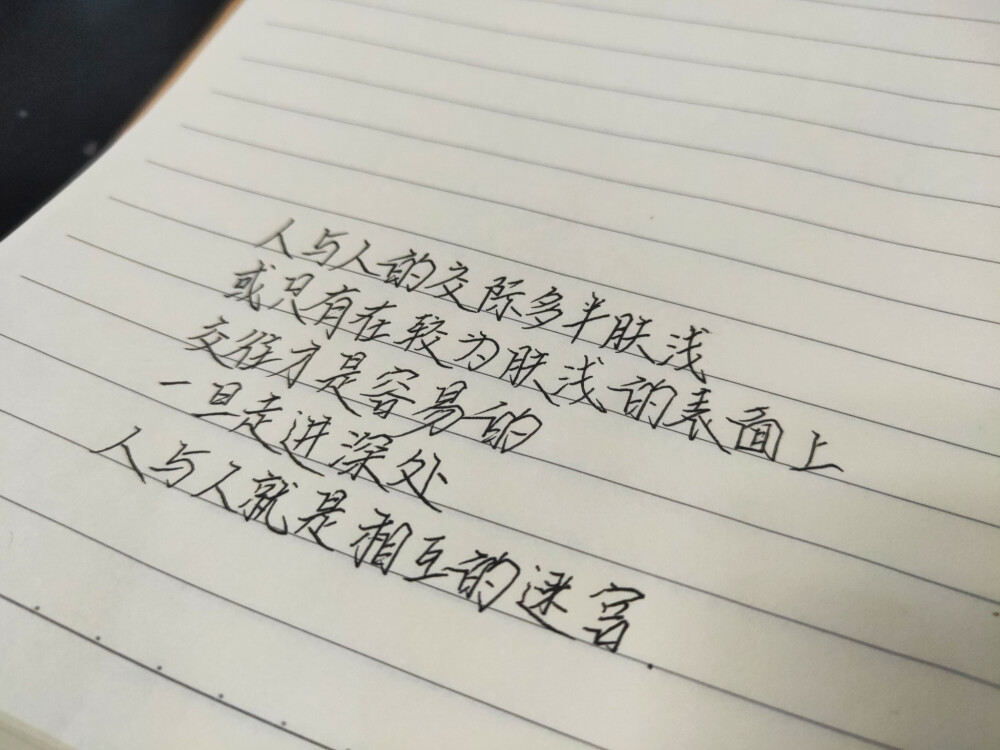 人与人的交际多半肤浅
或只有在较为肤浅的表面上
交往才是容易的
一旦走进深处
人与人就是相互的迷宫.